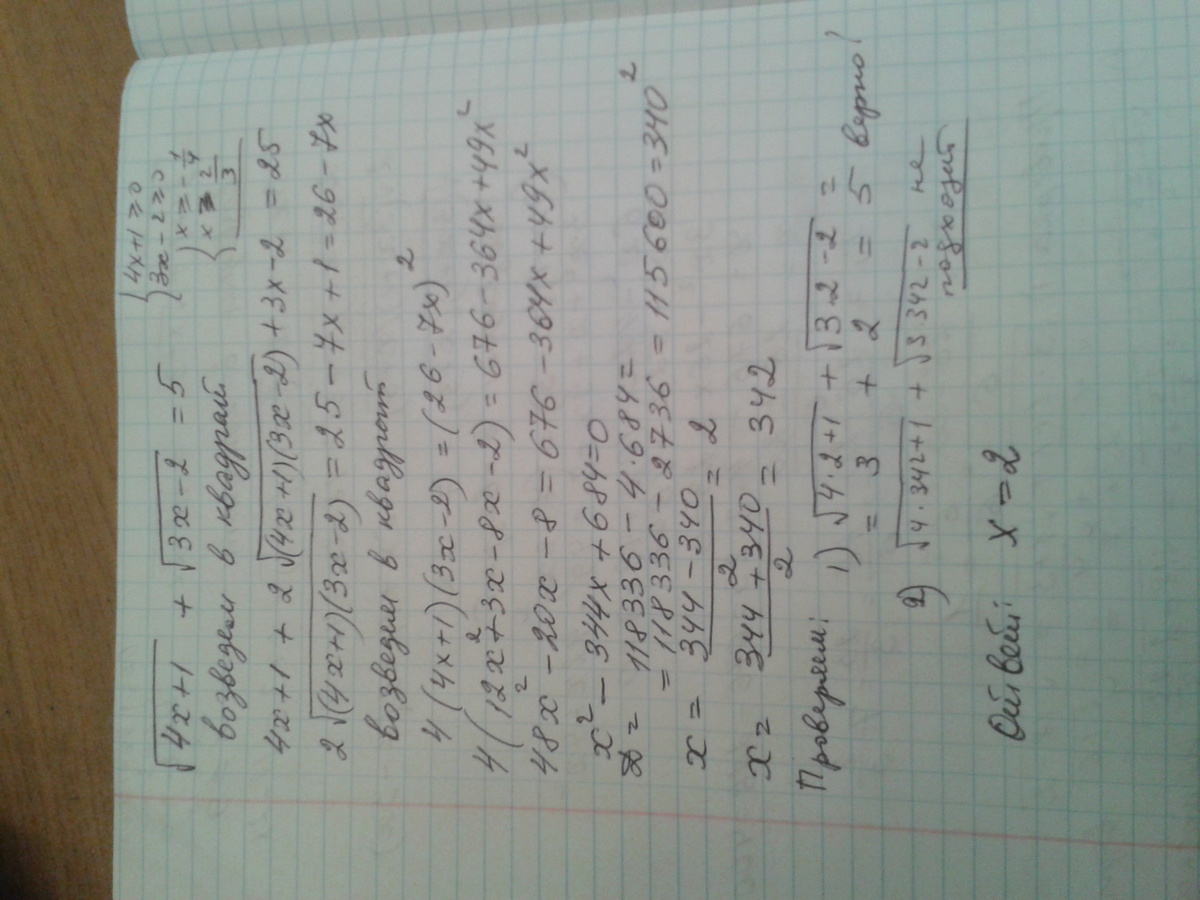 √(4x+1) + √(3x-2) = 5
{4x+1≥0
{3x-2≥0
{x≥-1/4
{x≥2/3
возведем в квадрат
4x+1+2√((4x+1)(3x-2))+3x-2=25
2√((4x+1)(3x-2))=25-7x+1=26-7x
возведем в квадрат
4(4x+1)(3x-2)=(26-7x)²
4(12x²+3x-8x-2)=676-364x+49x²
48x²-20x-8=676-364x+49x²
x²-344x+684=0
D=118336-4·684=
=118336-2736=115600=340²
x=(344-340)/2=2
x=(344+340)/2=342
Проверяем: 1) √(4·2+1)+√(3·2-2)=
= 3 + 2 = 5 верно!
2) √(4·342+1)+√(3·342-2) не
подходит
Ответ: x=2